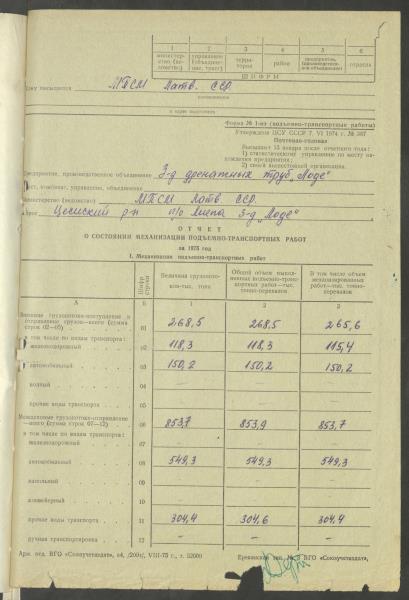 1 2 3 4 5 6
министер-
ство (ве-
домство)
управление
(объедине-
ние, трест)
терри-
тория
район
предприятие,
(производствен-
ное объединение)
отрасль
ШИФРЫ
Кому высылается МПСМ Латв. ССР.
наименование
и адрес получателя
Форма № 1-мп (подъемно-транспортные работы)
Утверждена ЦСУ СССР 7. VI 1974 г. № 387
Почтовая-годовая
Высылают 15 января после отчетного года:
1) статистическому управлению по месту на-
хождения предприятия;
2) своей вышестоящей организации.
Предприятие, производственное объединение З-д дренажных труб „Лоде"
Трест, комбинат, управление, объединение
Министерство (ведомство) МПСМ Латв. ССР.
Адрес Цесисский р-н п/о Лиепа З-д „Лоде"
ОТЧЕТ
О СОСТОЯНИИ МЕХАНИЗАЦИИ ПОДЪЕМНО-ТРАНСПОРТНЫХ РАБОТ
за 1975 год
1. Механизация подъемно-транспортных работ
Шифр строки
Величина грузопото-
ков-тыс. тонн
Общий объем выпол-
ненных подъемно-транс-
портных работ—тыс.
тонно-перевалок
В том числе объем
механизированных
работ—тыс. тонно-
перевалок
А Б 1 2 3
Внешние грузопотоки-поступление и
отправление грузов—всего (сумма
строк 02—05) 01 268,5 268,5 265,6
в том числе по видам транспорта:
железнодорожный 02 118,3 118,3 115,4
автомобильный 03 150,2 150,2 150,2
водный 04 — — —
прочие виды транспорта 05 — — —
Межцеховые грузопотоки-отправление
—всего (сумма строк 07—12) 06 853,7 853,9 853,7
в том числе по видам транспорта:
железнодорожный 07 — — —
автомобильный 08 549,3 549,3 549,3
напольный 09 — — —
конвейерный 10
прочие виды транспорта 11 304,4 304,6 304,4
ручная транспортировка 12 — — —
Арм. отд. ВГО «Союзучетиздат», VIII-75 г., т. 52000
ВГО «Союзучетиздат»,